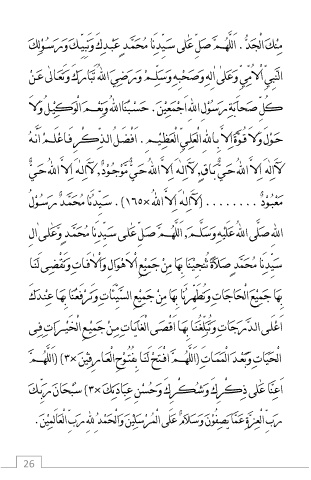 مِنْكَ الْجَدُّ . اَللّٰهُمَّ صَلِّ عَلٰى سَيِّدِنَا مُحَمَّدٍ عَبْدِكَ وَنَبِيِّكَ وَرَسُوْلِكَ
النَّبِيِّ الْاُمِّيِّ وَعَلٰى اٰلِهٖ وَصَحْبِهٖ وَسَلِّمْ وَرَضِيَ اللهُ تَبَارَكَ وَتَعَالٰى عَنْ
كُلِّ صَحَابَةِ رَسُوْلِ اللهِ اَجْمَعِيْنَ . حَسْبُنَا اللهُ وَنِعْمَ الْوَكِيْلُ وَلَا
حَوْلَ وَلَا قُوَّةَ اِلَّا بِاللهِ الْعَلِيِّ الْعَظِيْمِ . اَفْضَلُ الذِّكْرِ فَاعْلَمْ اَنَّهُ
لَآاِلٰهَ اِلَّا اللهُ حَيٌّ بَاقٍ, لَآاِلٰهَ اِلَّا اللهُ حَيٌّ مَوْجُوْدٌ, لَآاِلٰهَ اِلَّا اللهُ حَيٌّ
مَعْبُوْدٌ . . . . . . . . (لَآاِلٰهَ اِلَّا اللهُ ×١٦٥) . سَيِّدُنَا مُحَمَّدٌ رَسُوْلُ
اللهِ صَلَّى اللهُ عَلَيْهِ وَسَلَّمَ, اَللّٰهُمَّ صَلِّ عَلٰى سَيِّدِنَا مُحَمَّدٍ وَعَلٰى اٰلِ
سَيِّدِنَا مُحَمَّدٍ صَلَاةً تُنْجِيْنَا بِهَا مِنْ جَمِيْعِ الْاَهْوَالِ وَالْاٰفَاتِ وَتَقْضِى لَنَا
بِهَا جَمِيْعَ الْحَاجَاتِ وَتُطَهِّرُنَا بِهَا مِنْ جَمِيْعِ السَّيِّئَاتِ وَتَرْفَعُنَا بِهَا عِنْدَكَ
اَعْلَى الدَّرَجَاتِ وَتُبَلِّغُنَا بِهَا اَقْصَى الْغَايَاتِ مِنْ جَمِيْعِ الْخَيْرَاتِ فِى
الْحَيَاتِ وَبَعْدَ الْمَمَاتِ (اَللّٰهُمَّ افْتَحْ لَنَا بِفُتُوْحِ الْعَارِفِيْنَ ×٣) (اَللّٰهُمَّ
اَعِنَّا عَلٰى ذِكْرِكَ وَشُكْرِكَ وَحُسْنِ عِبَادَتِكَ ×٣) سُبْحَانَ رَبِّكَ
رَبِّ الْعِزَّةِ عَمَّا يَصِفُوْنَ وَسَلَامٌ عَلَى الْمُرْسَلِيْنَ وَالْحَمْدُ لِلّٰهِ رَبِّ الْعَالَمِيْنَ .
26